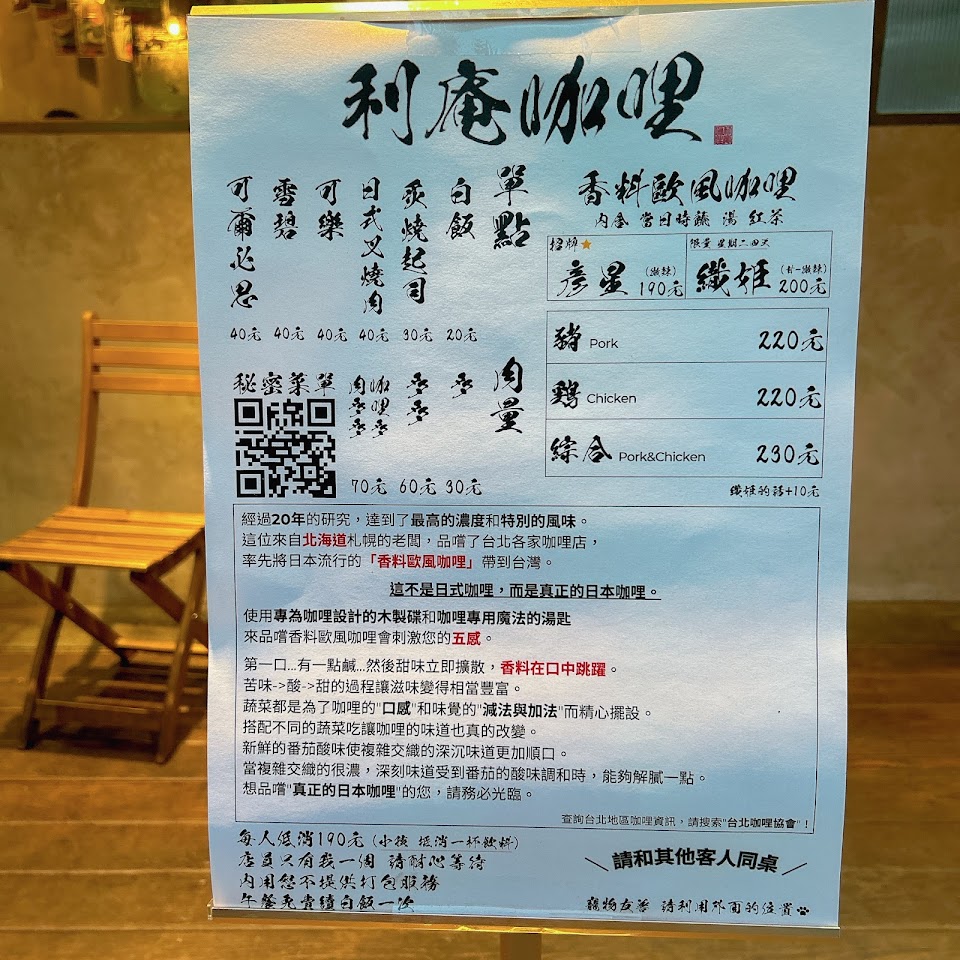 利庵咖哩
單點
白飯 20元
炙燒起司 30元
日式叉燒肉 40元
可樂 40元
雪碧 40元
可爾必思 40元
肉量
多 30元
多多 60元
咖哩多多
肉多多
70元
秘密菜單
香料歐風咖哩
內含 當日時蔬 湯 紅茶
招牌
彦星 (微辣) 190元
限量 星期二四六
織姬 (甘~微辣) 200元
豬 Pork 220元
鷄 Chicken 220元
綜合 Pork&Chicken 230元
織姬的話+10元
經過20年的研究，達到了最高的濃度和特別的風味。
這位來自北海道札幌的老闆，品嚐了台北各家咖哩店，
率先將日本流行的「香料歐風咖哩」帶到台灣。
這不是日式咖哩，而是真正的日本咖哩。
使用專為咖哩設計的木製碟和咖哩專用魔法的湯匙
來品嚐香料歐風咖哩會刺激您的五感。
第一口...有一點鹹...然後甜味立即擴散，香料在口中跳躍。
苦味->酸->甜的過程讓滋味變得相當豐富。
蔬菜都是為了咖哩的"口感"和味覺的"減法與加法"而精心擺設。
搭配不同的蔬菜吃讓咖哩的味道也真的改變。
新鮮的番茄酸味使複雜交織的深沉味道更加順口。
當複雜交織的很濃，深刻味道受到番茄的酸味調和時，能夠解膩一點。
想品嚐"真正的日本咖哩"的您，請務必光臨。
查詢台北地區咖哩資訊，請搜索"台北咖哩協會"！
每人低消190元 (小孩 低消一杯飲料)
店員只有我一個 請耐心等待
內用恕不提供打包服務
午餐免費續白飯一次
請和其他客人同桌
寵物友善 請利用外面的位置